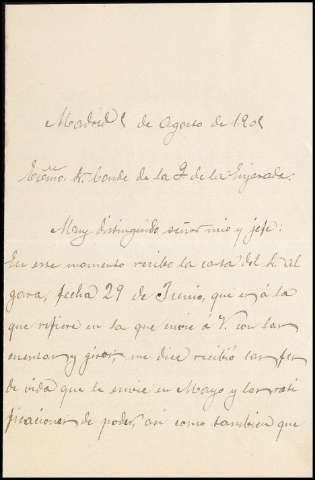 Madrid de Agosto de 190
Exmo. Sr. Conde de la de la Enjarada:
Muy distinguido señor mio y jefe:
En este momento recibo la carta del Sr. Al
gara, fecha 29 de Junio, que es á la
que refiere en la que envie á V. con las
cuentas y giros, me dice recibió las fes
de vida que le envie en Mayo y las rati
ficaciones de poder, asi como tambien que